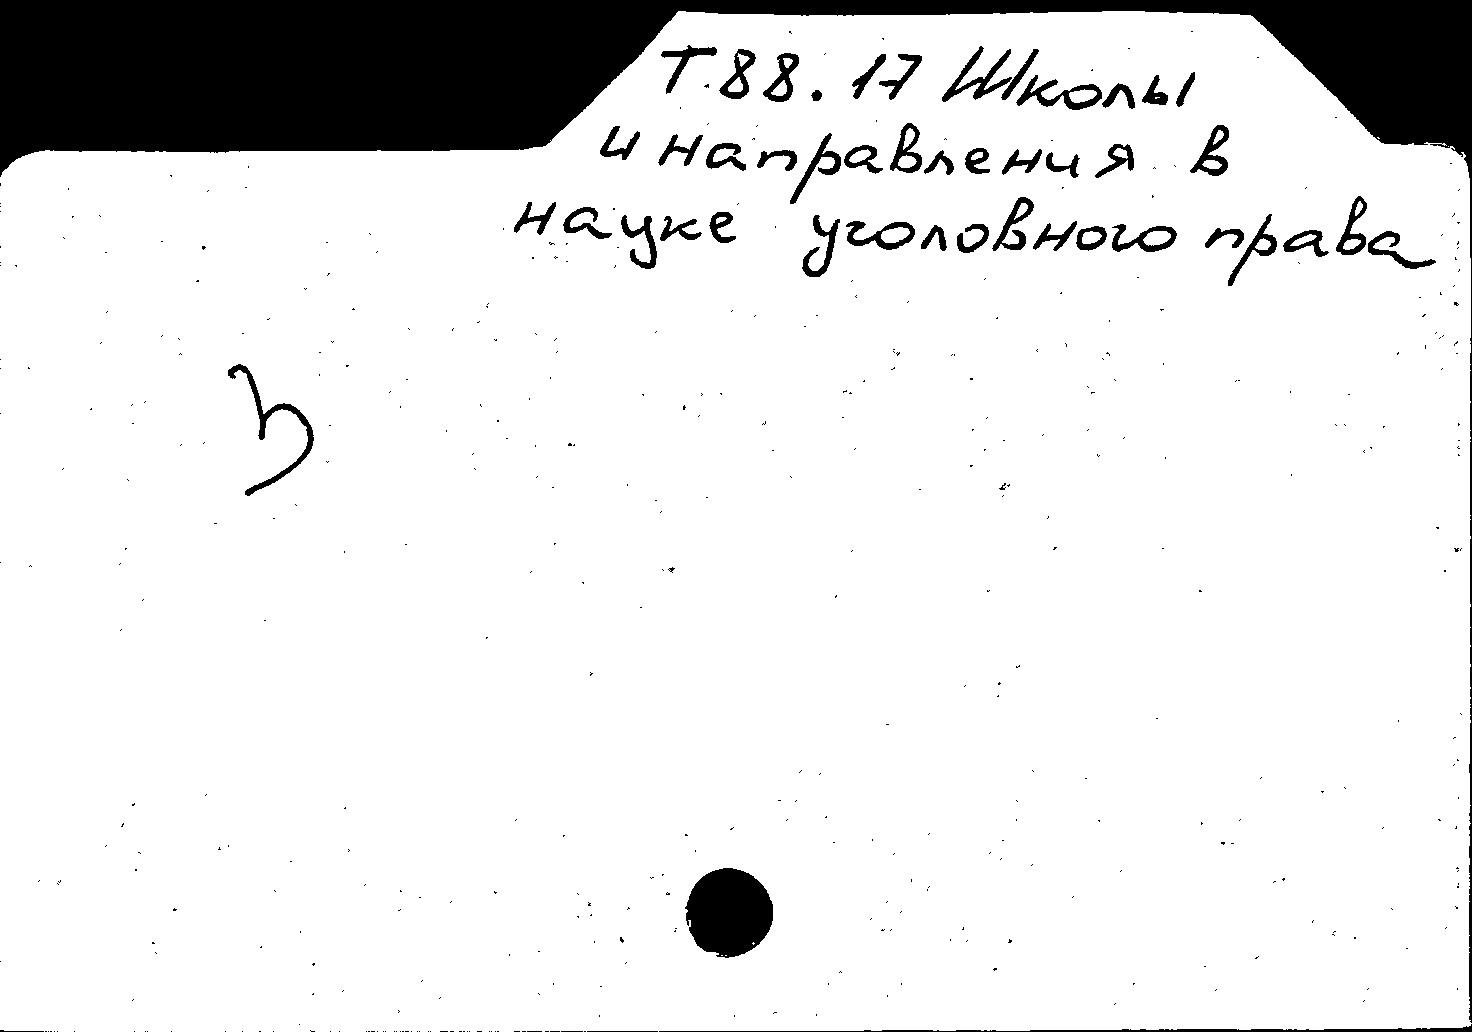 Т.88.17 Школы
и направления в
науке уголовного права